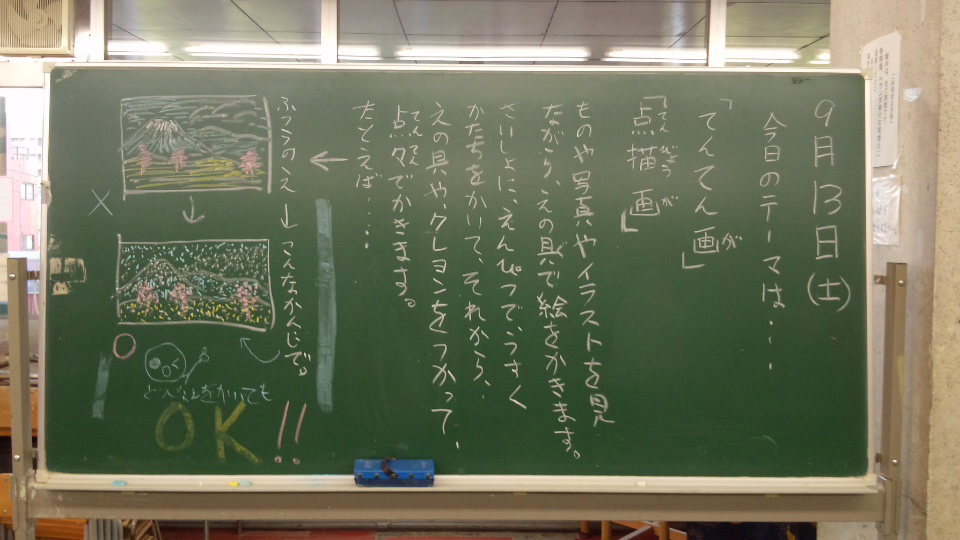 9月13日(土)
今日のテーマは・・・
「てんてん画」が
「点描画」てんびょうが
もの や写真やイラストを見
ながら、えの具で絵をかきます。
さいしょに、えんぴつでうすく
かたちをかいて、それから、
えの具や、クレヨンをつかって、
点々でかきます。てんてん
たとえば・・・・
←
ふつうのえ→こんなかんじで。
×
○
どんなえをかいても
OK!!